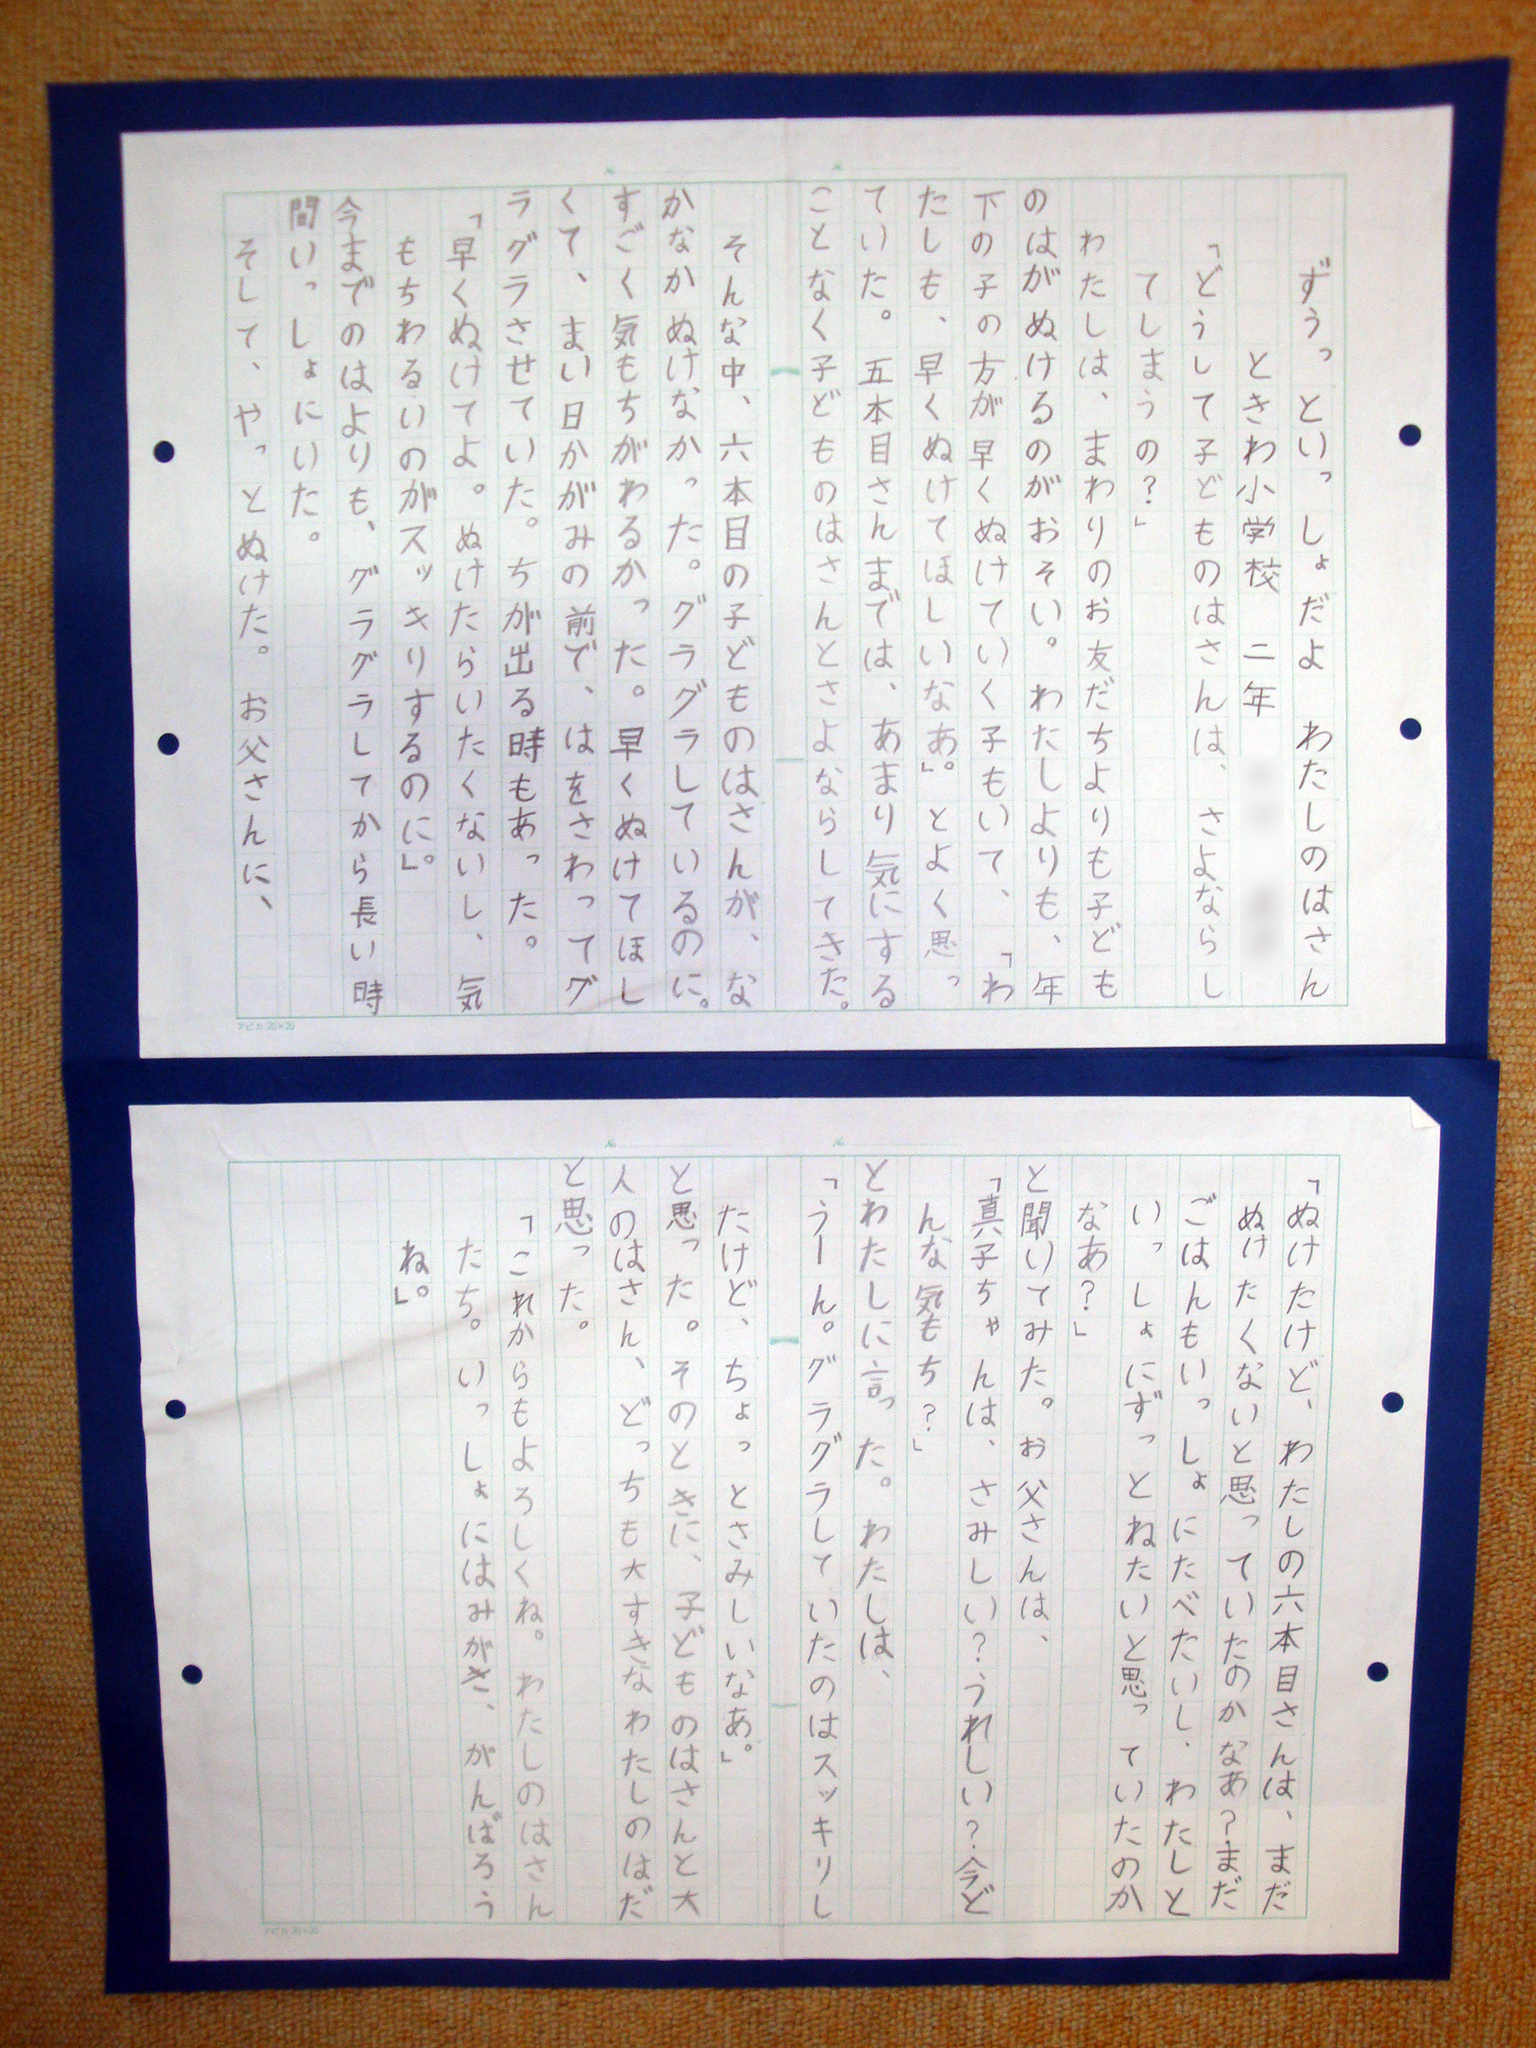 ずうっといっしょだよ　わたしのはさん
ときわ小学校　二年
「どうして子どものはさんは、さよならし
てしまうの？」
わたしは、まわりのお友だちよりも子ども
のはがぬけるのがおそい。わたしよりも、年
下の子の方が早くぬけていく子もいて、「わ
たしも、早くぬけてほしいなあ」。とよく思っ
ていた。五本目さんまでは、あまり気にする
ことなく子どものはさんとさよならしてきた。
そんな中、六本目の子どものはさんが、な
かなかぬけなかった。グラグラしているのに。
すごく気もちがわるかった。早くぬけてほし
くて、まい日かがみの前で、はをさわってグ
ラグラさせていた。ちが出る時もあった。
「早くぬけてよ。ぬけたらいたくないし、気
もちわるいのがスッきりするのに」。
今までのはよりも、グラグラしてから長い時
間いっしょにいた。
そして、やっとぬけた。お父さんに、
アピカ 20×20
「ぬけたけど、わたしの六本目さんは、まだ
ぬけたくないと思っていたのかなあ？まだ
ごはんもいっしょにたべたいし、わたしと
いっしょにずっとねたいと思っていたのか
なあ？」
と聞いてみた。お父さんは、
「真子ちゃんは、さみしい？うれしい？今ど
んな気もち？」
とわたしに言った。わたしは、
「うーん。グラグラしていたのはスッキリし
たけど、ちょっとさみしいなあ。」
と思った。そのときに、子どものはさんと大
人のはさん、どっちも大すきなわたしのはだ
と思った。
「これからもよろしくね。わたしのはさん
たち。いっしょにはみがき、がんばろう
ね。」
アピカ 20×20